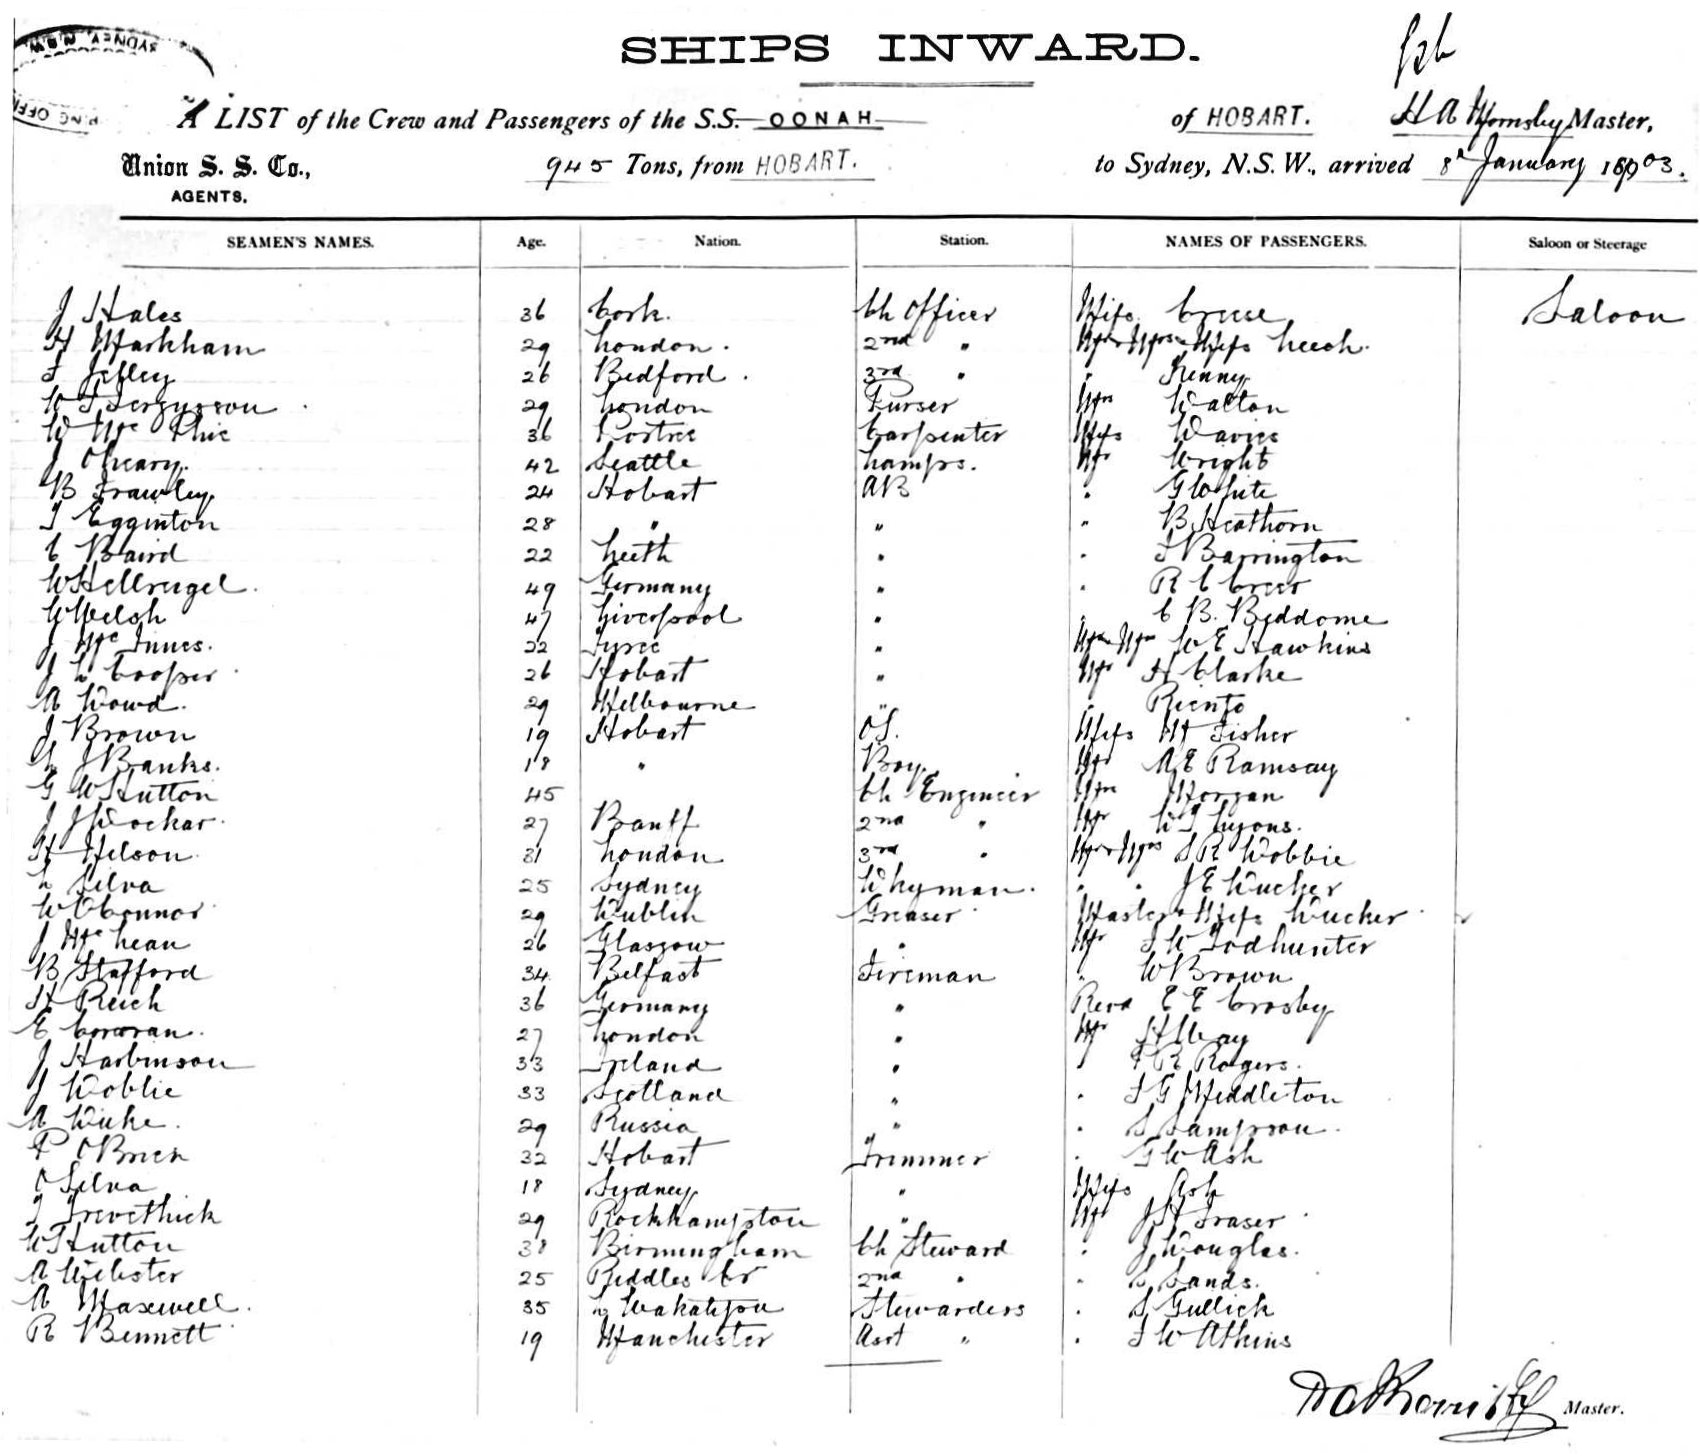 SYDNEY N.S.W.
SHIPS INWARD.
A LIST of the Crew and Passengers of the S.S. OONAH of HOBART. H A Hornsby Master,
Union S. S. Co., 945 Tons, from HOBART. to Sydney, N.S.W., arrived 8th January 1903.
AGENTS.
SEAMEN'S NAMES. Age. Nation. Station. NAMES OF PASSENGERS. Saloon or Steerage
J Hales 36 Cork. Ch Officer Miss Cruse Saloon
H Markham 29 London. 2nd " Mr & Mrs & Miss Leech.
26 Bedford. 3rd " " Kenny
W F Fergusson 29 London Purser Mrs Walton
W Mc Phie 36 Carpenter Miss Davies
J OLeary. 42 Seattle Lamps. Mr Wright
B Frawley 24 Hobart AB " G White
T Egginton 28 " " " B Heathorn
C Baird 22 Leith " " Barrington
W Hellreigel. 49 Germany " " R C Creer
W Welsh 47 Liverpool " " C B. Beddome
J Mc Innes. 22 Tyree " Mr & Mrs W E Hawkins
J L Cooper 26 Hobart " Mr H Clarke
A Dowd. 29 Melbourne " "
J Brown 19 Hobart OS. Miss M Fisher
L J Banks. 18 " Boy Mr A E Ramsay
G W Hutton 45 Ch Engineer Mrs Morgan
J J Dockar. 27 Banff 2nd " Mr W J Lyons.
H Nelson 31 London 3rd " Mr & Mrs S R Dobbie
L Silva 25 Sydney Whyman. " " J E Tucker
W OConnor 29 Dublin Greaser Master & Miss Tucker
J Mc Lean 26 Glasgow " Mr T W Todhunter
B Stafford 34 Belfast Fireman " W Brown
H Reich 36 Germany " Revd E E Crosby
E Corcoran. 27 London " Mr
J Harbinson 33 Ireland " " R Rogers.
J Doblie 33 Scotland " " T G Middleton
A Wicke. 29 Russia " " S Sampson.
P OBrien 32 Hobart Trimmer " G W Ash
O Silva 18 Sydney " Miss Ash
T Trevethick 29 Rockhampton " Mr J H Fraser
W Hutton 38 Birmingham Ch Steward " J Douglas.
A Webster 25 Riddles Cr 2nd " " S Sands.
A Maxwell. 35 L Wakatipu Stewardess " S Gullick
R Bennett 19 Manchester Asst " " T W Atkins
Master.